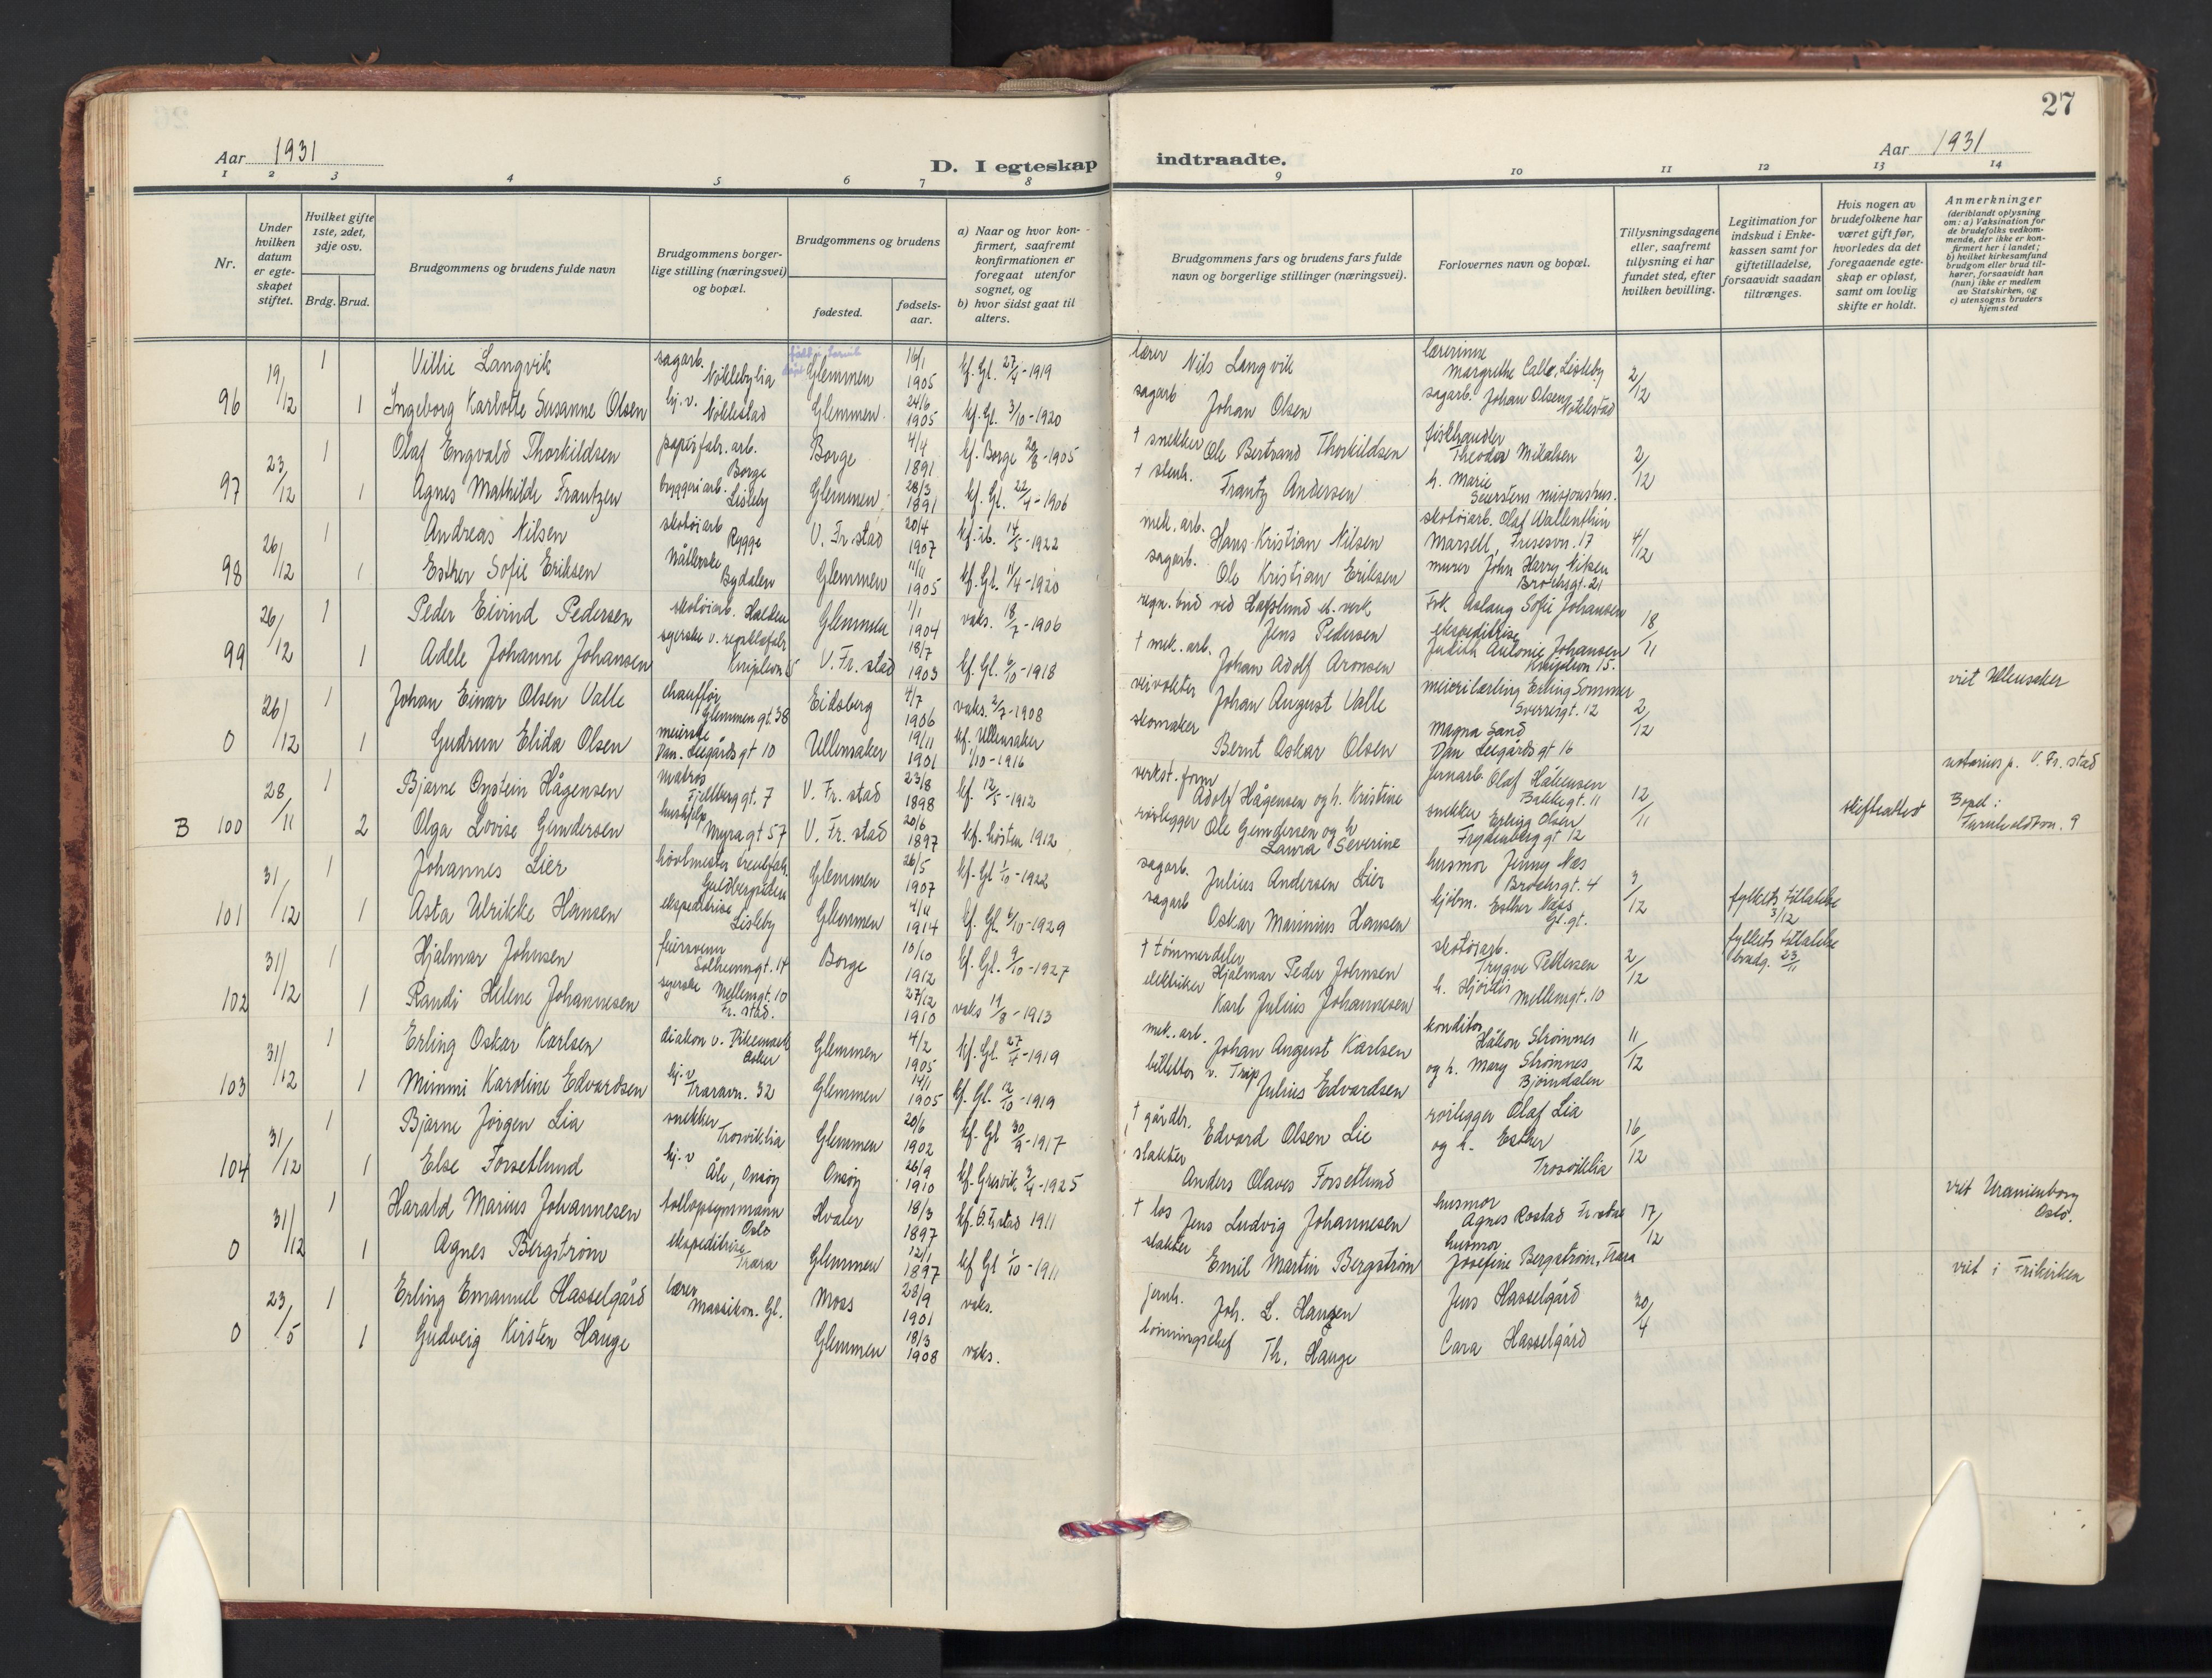 27
Aar 1931
D. I egteskap indtraadte.
Aar 1931
1 2 3 4 5 6 7 8 9 10 11 12 13 14
Nr.
Under hvilken datum er egteskapet stiftet.
Hvilket gifte 1ste, 2det, 3dje osv.
Brdg. Brud.
Brudgommens og brudens fulde navn
Brudgommens borgerlige stilling (næringsvei) og bopæl.
Brudgommens og brudens
fødested.
fødselsaar.
a) Naar og hvor konfirmert, saafremt konfirmationen er foregaat utenfor sognet, og
b) hvor sidst gaat til alters.
Brudgommens fars og brudens fars fulde navn og borgerlige stillinger (næringsvei).
Forlovernes navn og bopæl.
Tillysningsdagene eller, saafremt tillysning ei har fundet sted, efter hvilken bevilling.
Legitimation for indskud i Enkekassen samt for giftetilladelse, forsaavidt saadan tiltrænges.
Hvis nogen av brudefolkene har været gift før, hvorledes da det foregaaende egteskap er opløst, samt om lovlig skifte er holdt.
Anmerkninger (deriblandt oplysning om: a) Vaksination for de brudefolks vedkommende, der ikke er konfirmert her i landet; b) hvilket kirkesamfund brudgom eller brud tilhører, forsaavidt han (hun) ikke er medlem av Statskirken, og c) utensogns bruders hjemsted
96 19/12 1 Villie Langvik sagarb. Nøklebylia Glemmen 16/1 1905 kf. Gl. 27/4-1919 lærer Nils Langvik lærerinne Margrethe Calle, Lisleby 2/12
1 Ingeborg Karlotte Susanne Olsen hj. v. Nøklestad Glemmen 24/6 1905 kf. Gl. 3/10-1920 sagarb Johan Olsen sagarb. Johan Olsen Nøklestad
97 23/12 1 Olaf Engvald Thorkildsen papirfabr. arb. Borge Borge 4/4 1891 kf. Borge 20/8-1905 † snekker Ole Bertrand Thorkildsen fiskhandler Theodor Mikalsen 2/12
1 Agnes Mathilde Frantzen bryggeriarb. Lisleby Glemmen 28/3 1891 kf. Gl. 22/4-1906 † stenh. Frantz Andersen h. Marie Seierstens misjonshus.
98 26/12 1 Andreas Nilsen skotøiarb Rygge V. Fr.stad 20/4 1907 kf. ib. 14/5-1922 mek. arb. Hans Kristian Nilsen skotøiarb. Olaf Wallenthin Marsell, Fresesvn. 17 4/12
1 Esther Sofie Eriksen Bydalen Glemmen 11/11 1905 kf. Gl. 11/4-1920 sagarb. Ole Kristian Eriksen murer John Harry Nilsen Brochsgt. 21
99 26/12 1 Peder Eivind Pedersen skotøiarb. Halden Glemmen 1/1 1904 vaks. 18/7-1906 regn. bud ved Hafslund el. verk Jens Pedersen Frk. Aslaug Sofie Johansen ekspeditrise 18/11
1 Adele Johanne Johansen syerske Kniplevn 15 V. Fr. stad 18/7 1903 kf. Gl. 6/10-1918 † mek. arb. Johan Adolf Aronsen Judith Antonie Johansen Kniplevn 15.
0 26/12 1 Johan Einar Olsen Valle chauffør Glemmengt. 38 Eidsberg 4/7 1906 vaks. 2/7-1908 veivokter Johan August Valle meierilærling Erling Sommer Sverresgt. 12 2/12 viet Ullensaker
1 Gudrun Elida Olsen meierske Dan. Leegårdsgt 10 Ullensaker 19/11 1901 kf. Ullensaker 1/10-1916 skomaker Bernt Oskar Olsen Magna Sand Dan Leegårdsgt 16
B 100 28/11 1 Bjarne Øystein Hågensen matros Fjellberggt. 7 V. Fr. stad 23/8 1898 kf. 12/5-1912 verkst. form Adolf Hågensen og h. Kristine jernarb. Olaf Håkensen Bakkegt. 11 12/11 notarius p. V. Fr. stad
2 Olga Lovise Gundersen hushjelp Myragt 57 V. Fr. stad 20/6 1897 kf. høsten 1912 rørlegger Ole Gundersen og h Laura Severine snekker Erling Olsen Frydenberggt 12 skifteattest Bopel:
101 31/12 1 Johannes Lier Glemmen 26/5 1907 kf. Gl 1/10-1922 sagarb. Julius Andersen Lier husmor Jenny Næs Brochsgt. 4 3/12
1 Asta Ulrikke Hansen ekspeditrise Lisleby Glemmen 4/11 1914 kf. Gl. 6/10-1929 sagarb Oskar Marinius Hansen kjøbm. Esther Næss Gl.gt. fylkets tillatelse 3/12
102 31/12 1 Hjalmar Johnsen feiersvenn Solheimgt. 14 Borge 10/10 1912 kf. Gl. 9/10-1927 † tømmerdeler Hjalmar Peder Johnsen skotøiarb. Trygve Pettersen 2/12 fylkets tillatelse brudg. 23/11
1 Randi Helene Johannesen syerske Mellemgt. 10 Fr. stad. 27/12 1910 vaks 19/8-1913 elektriker Karl Julius Johannesen h. Hjørdis Mellemgt. 10
103 31/12 1 Erling Oskar Karlsen diakon v. Dikemark Asker Glemmen 4/2 1905 kf. Gl. 27/4-1919 mek. arb. Johan August Karlsen konditor Håkon Strømnes 11/12
1 Mimmi Karoline Edvardsen hj. v Traravn. 32 Glemmen 14/1 1905 kf. Gl. 12/10-1919 billettør v. Trip Julius Edvardsen og h. Mary Strømnes Bjørndalen
104 31/12 1 Bjarne Jørgen Lia snekker Trosviklia Glemmen 20/6 1902 kf. Gl 30/9-1917 † gårdbr. Edvard Olsen Lie rørlegger Olaf Lia 16/12
1 Else Forsetlund hj. v Åle, Onsøy Onsøy 26/9 1910 kf. Gresvik 9/4-1925 slakter Anders Olaves Forsetlund og h. Esther Trosviklia
0 31/12 1 Harald Marius Johannesen tollopsynsmann Oslo Hvaler 18/3 1897 kf. Ø. Fr.stad 1911 † los Jens Ludvig Johannesen husmor Agnes Rostad Fr.stad 17/12 viet Uranienborg Oslo.
1 Agnes Bergstrøm ekspeditrise Trara Glemmen 12/1 1897 kf Gl 1/10-1911 slakter Emil Martin Bergstrøm husmor Josefine Bergstrøm, Trara
0 23/5 1 Erling Emanuel Hasselgård lærer Gl. Moss 28/9 1901 vaks. jernh. Joh. L. Hansen Jens Hasselgård 20/4 viet i Frikirken
1 Gudveig Kirsten Hauge Glemmen 18/3 1908 vaks. lønningschef Th. Hauge Cara Hasselgård